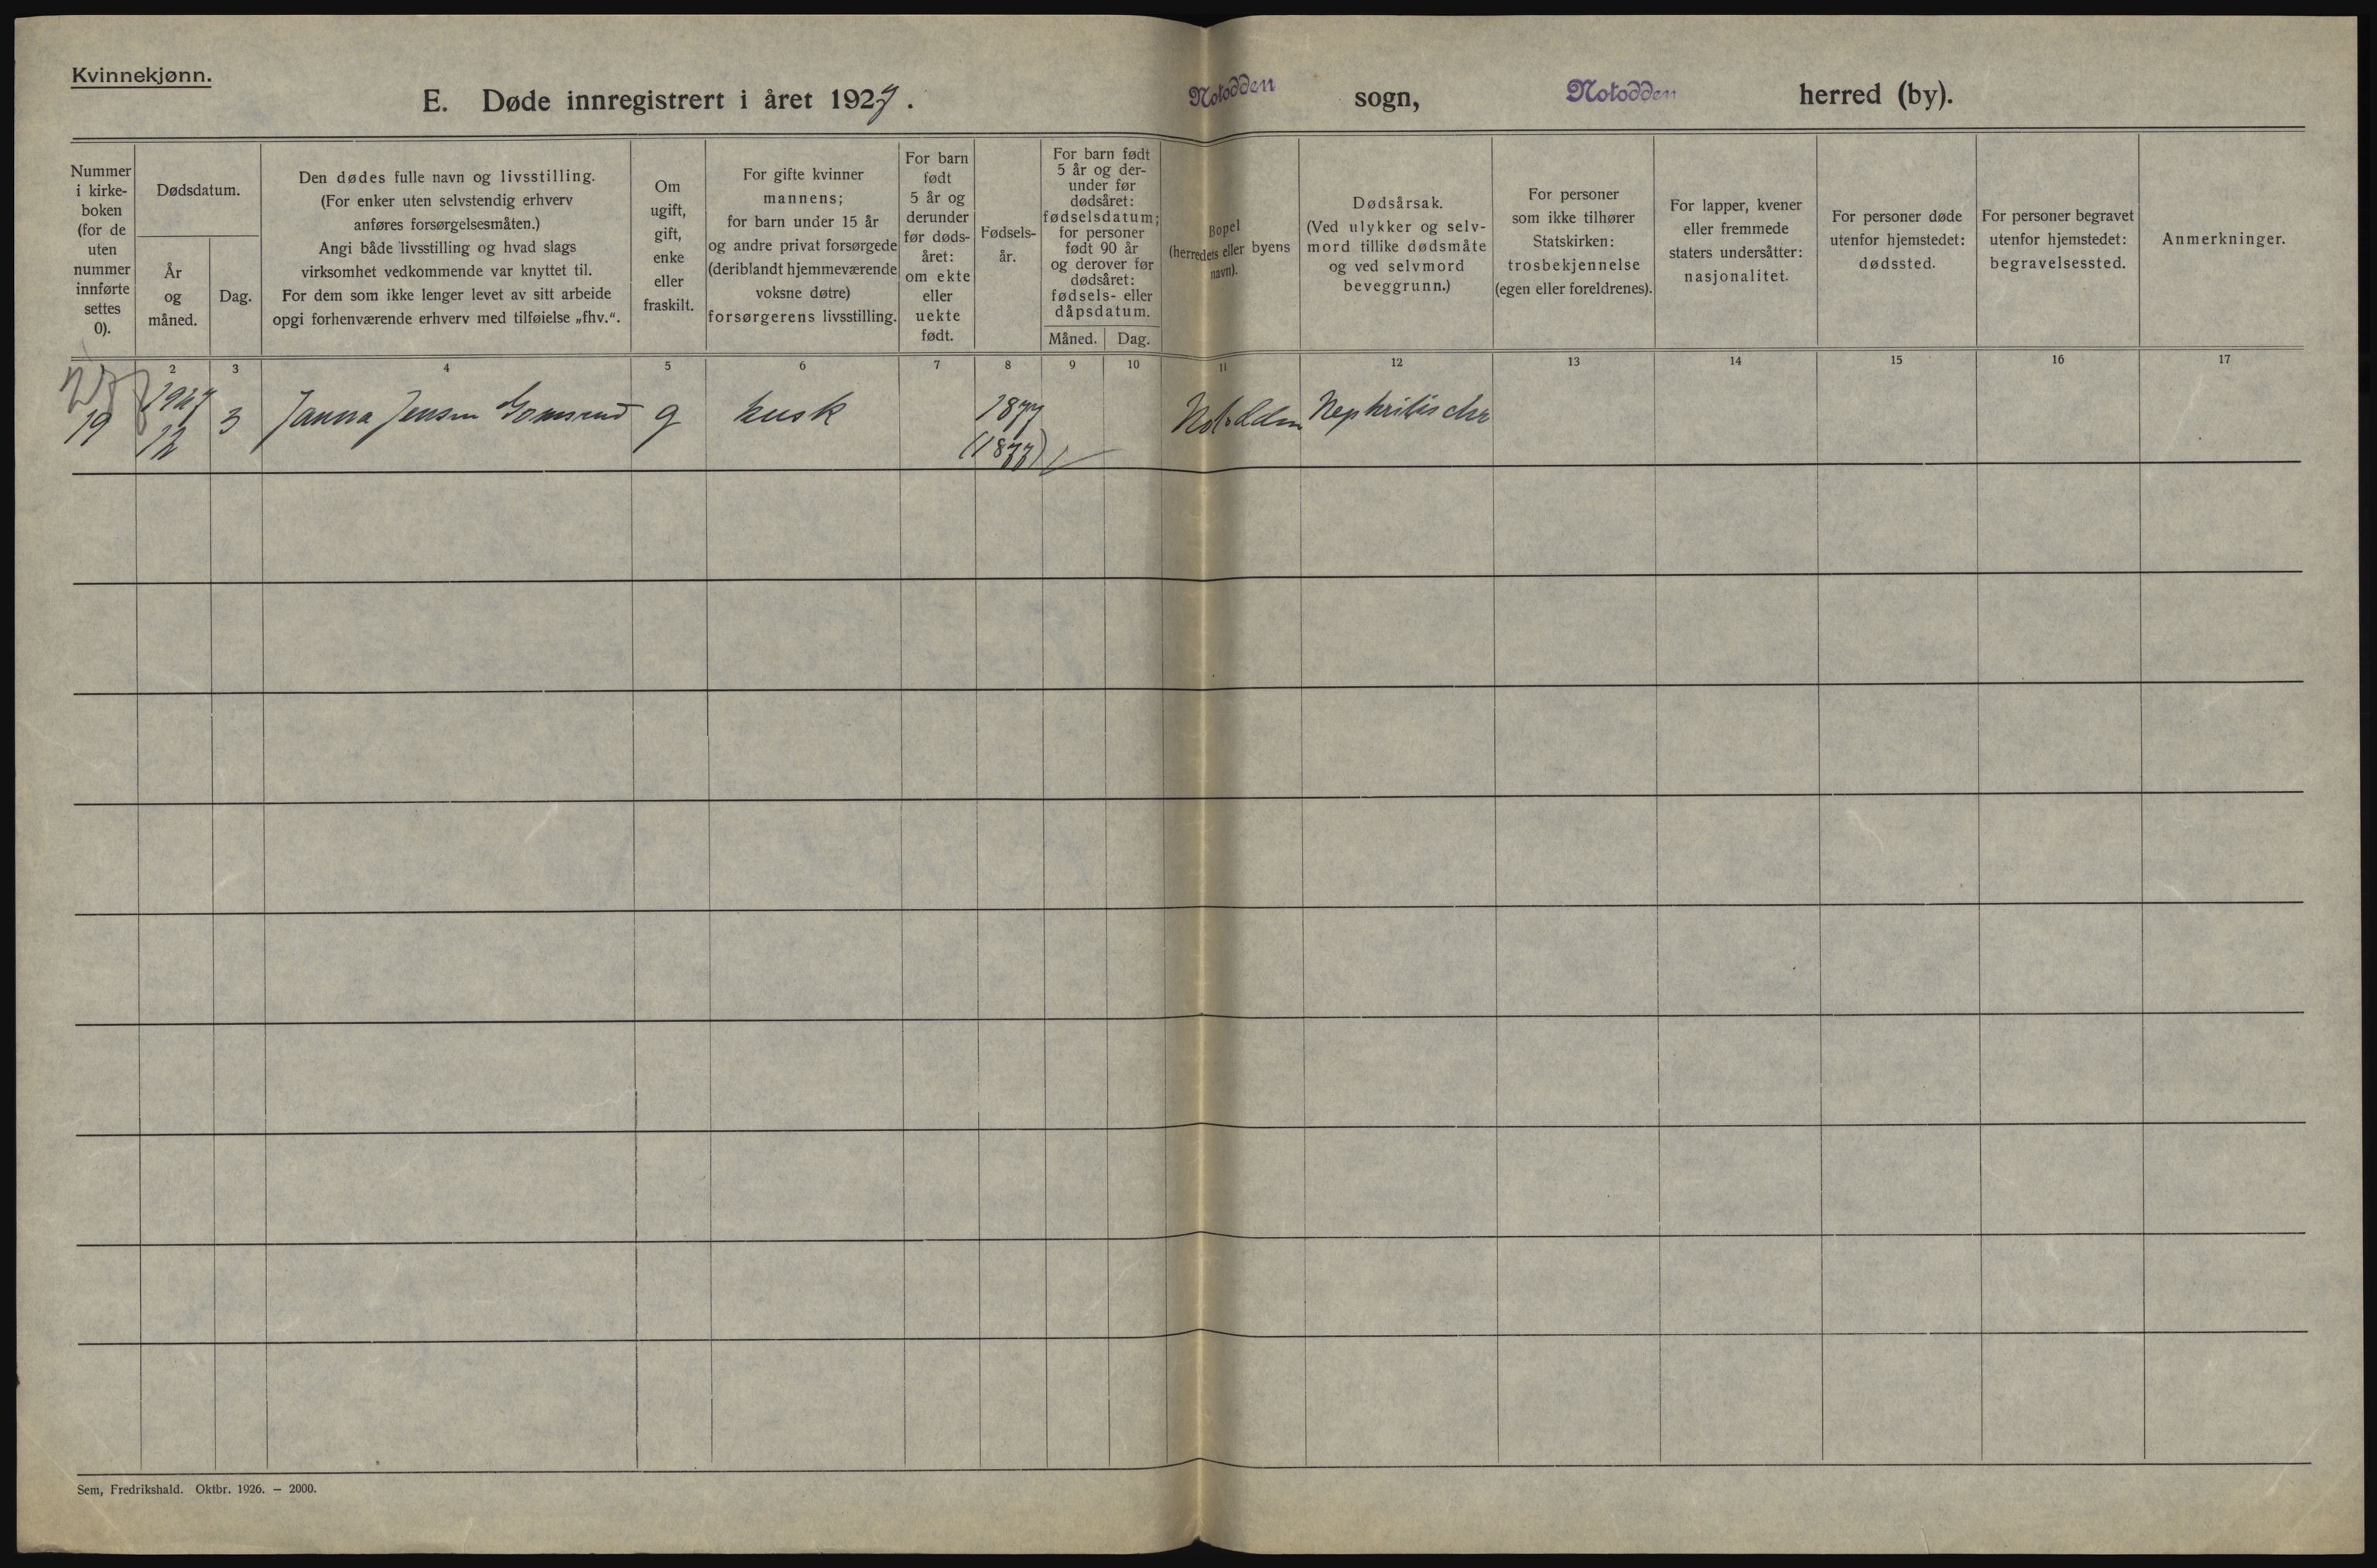 Kvinnekjønn.
E. Døde innregistrert i året 1927.
Notodden sogn, Notodden herred (by).
Nummer
i kirke-
boken
(for de
uten
nummer
innførte
settes
0).
Dødsdatum.
År
og
måned.
Dag.
Den dødes fulle navn og livsstilling.
(For enker uten selvstendig erhverv
anføres forsørgelsesmåten.)
Angi både livsstilling og hvad slags
virksomhet vedkommende var knyttet til.
For dem som ikke lenger levet av sitt arbeide
opgi forhenværende erhverv med tilføielse „fhv.“.
Om
ugift,
gift,
enke
eller
fraskilt.
For gifte kvinner
mannens;
for barn under 15 år
og andre privat forsørgede
(deriblandt hjemmeværende
voksne døtre)
forsørgerens livsstilling.
For barn
født
5 år og
derunder
før døds-
året:
om ekte
eller
uekte
født.
Fødsels-
år.
For barn født
5 år og der-
under før
dødsåret:
fødselsdatum;
for personer
født 90 år
og derover før
dødsåret:
fødsels- eller
dåpsdatum.
Måned. Dag.
Bopel
(herredets eller byens
navn).
Dødsårsak.
(Ved ulykker og selv-
mord tillike dødsmåte
og ved selvmord
beveggrunn.)
For personer
som ikke tilhører
Statskirken:
trosbekjennelse
(egen eller foreldrenes).
For lapper, kvener
eller fremmede
staters undersåtter:
nasjonalitet.
For personer døde
utenfor hjemstedet:
dødssted.
For personer begravet
utenfor hjemstedet:
begravelsessted.
Anmerkninger.
2 3 4 5 6 7 8 9 10 11 12 13 14 15 16 17
1927 1877
19 12 3 Janna Jensen Gomsrud g kusk Notodden Nephritis chr
(1877)
Sem, Fredrikshald. Oktbr. 1926. — 2000.